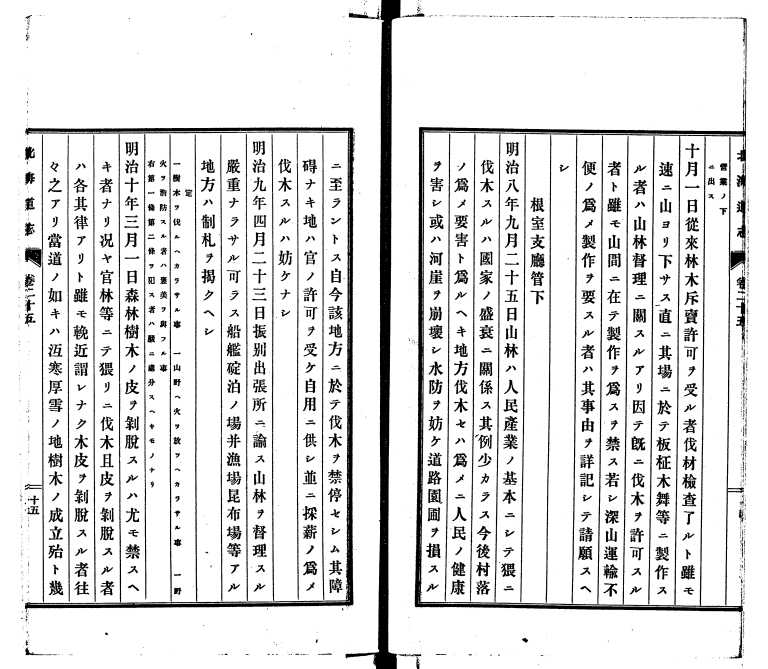 營業ノ下
ニ出ス
十月一日從來林木斥賣許可ヲ受ル者伐材檢査了ルト雖モ
速ニ山ヨリ下サス直ニ其場ニ於テ板柾木舞等ニ製作ス
ル者ハ山林督理ニ關スルアリ因テ旣ニ伐木ヲ許可スル
者ト雖モ山間ニ在テ製作ヲ爲スヲ禁ス若シ深山運輸不
便ノ爲メ製作ヲ要スル者ハ其事由ヲ詳記シテ請願スヘ
シ
根室支廳管下
明治八年九月二十五日山林ハ人民產業ノ基本ニシテ猥ニ
伐木スルハ國家ノ盛衰ニ關係ス其例少カラス今後村落
ノ爲メ要害ト爲ルヘキ地方伐木セハ爲メニ人民ノ健康
ヲ害シ或ハ河崖ヲ崩壞シ水防ヲ妨ケ道路園圃ヲ損スル
ニ至ラントス自今該地方ニ於テ伐木ヲ禁停セシム其障
碍ナキ地ハ官ノ許可ヲ受ケ自用ニ供シ並ニ採薪ノ爲メ
伐木スルハ妨ケナシ
明治九年四月二十三日振別出張所ニ諭ス山林ヲ督理スル
嚴重ナラサル可ラス船艦碇泊ノ場并漁場昆布場等アル
地方ハ制札ヲ揭クヘシ
定
一樹木ヲ伐ルヘカラサル事 一山野ヘ火ヲ放ツヘカラサル事 一野
火ヲ防スル者ハ褒美ヲ與フル事
右第一條第二條ヲ犯ス者ハ嚴ニ處分スヘキモノナリ
明治十年三月一日森林樹木ノ皮ヲ剝脫スルハ尤モ禁スヘ
キ者ナリ況ヤ官林等ニテ猥リニ伐木且皮ヲ剝脫スル者
ハ各其律アリト雖モ輓近謂レナク木皮ヲ剝脫スル者往
々之アリ當道ノ如キハ沍寒厚雪ノ地樹木ノ成立殆ト幾
北海道志 卷二十五
十五